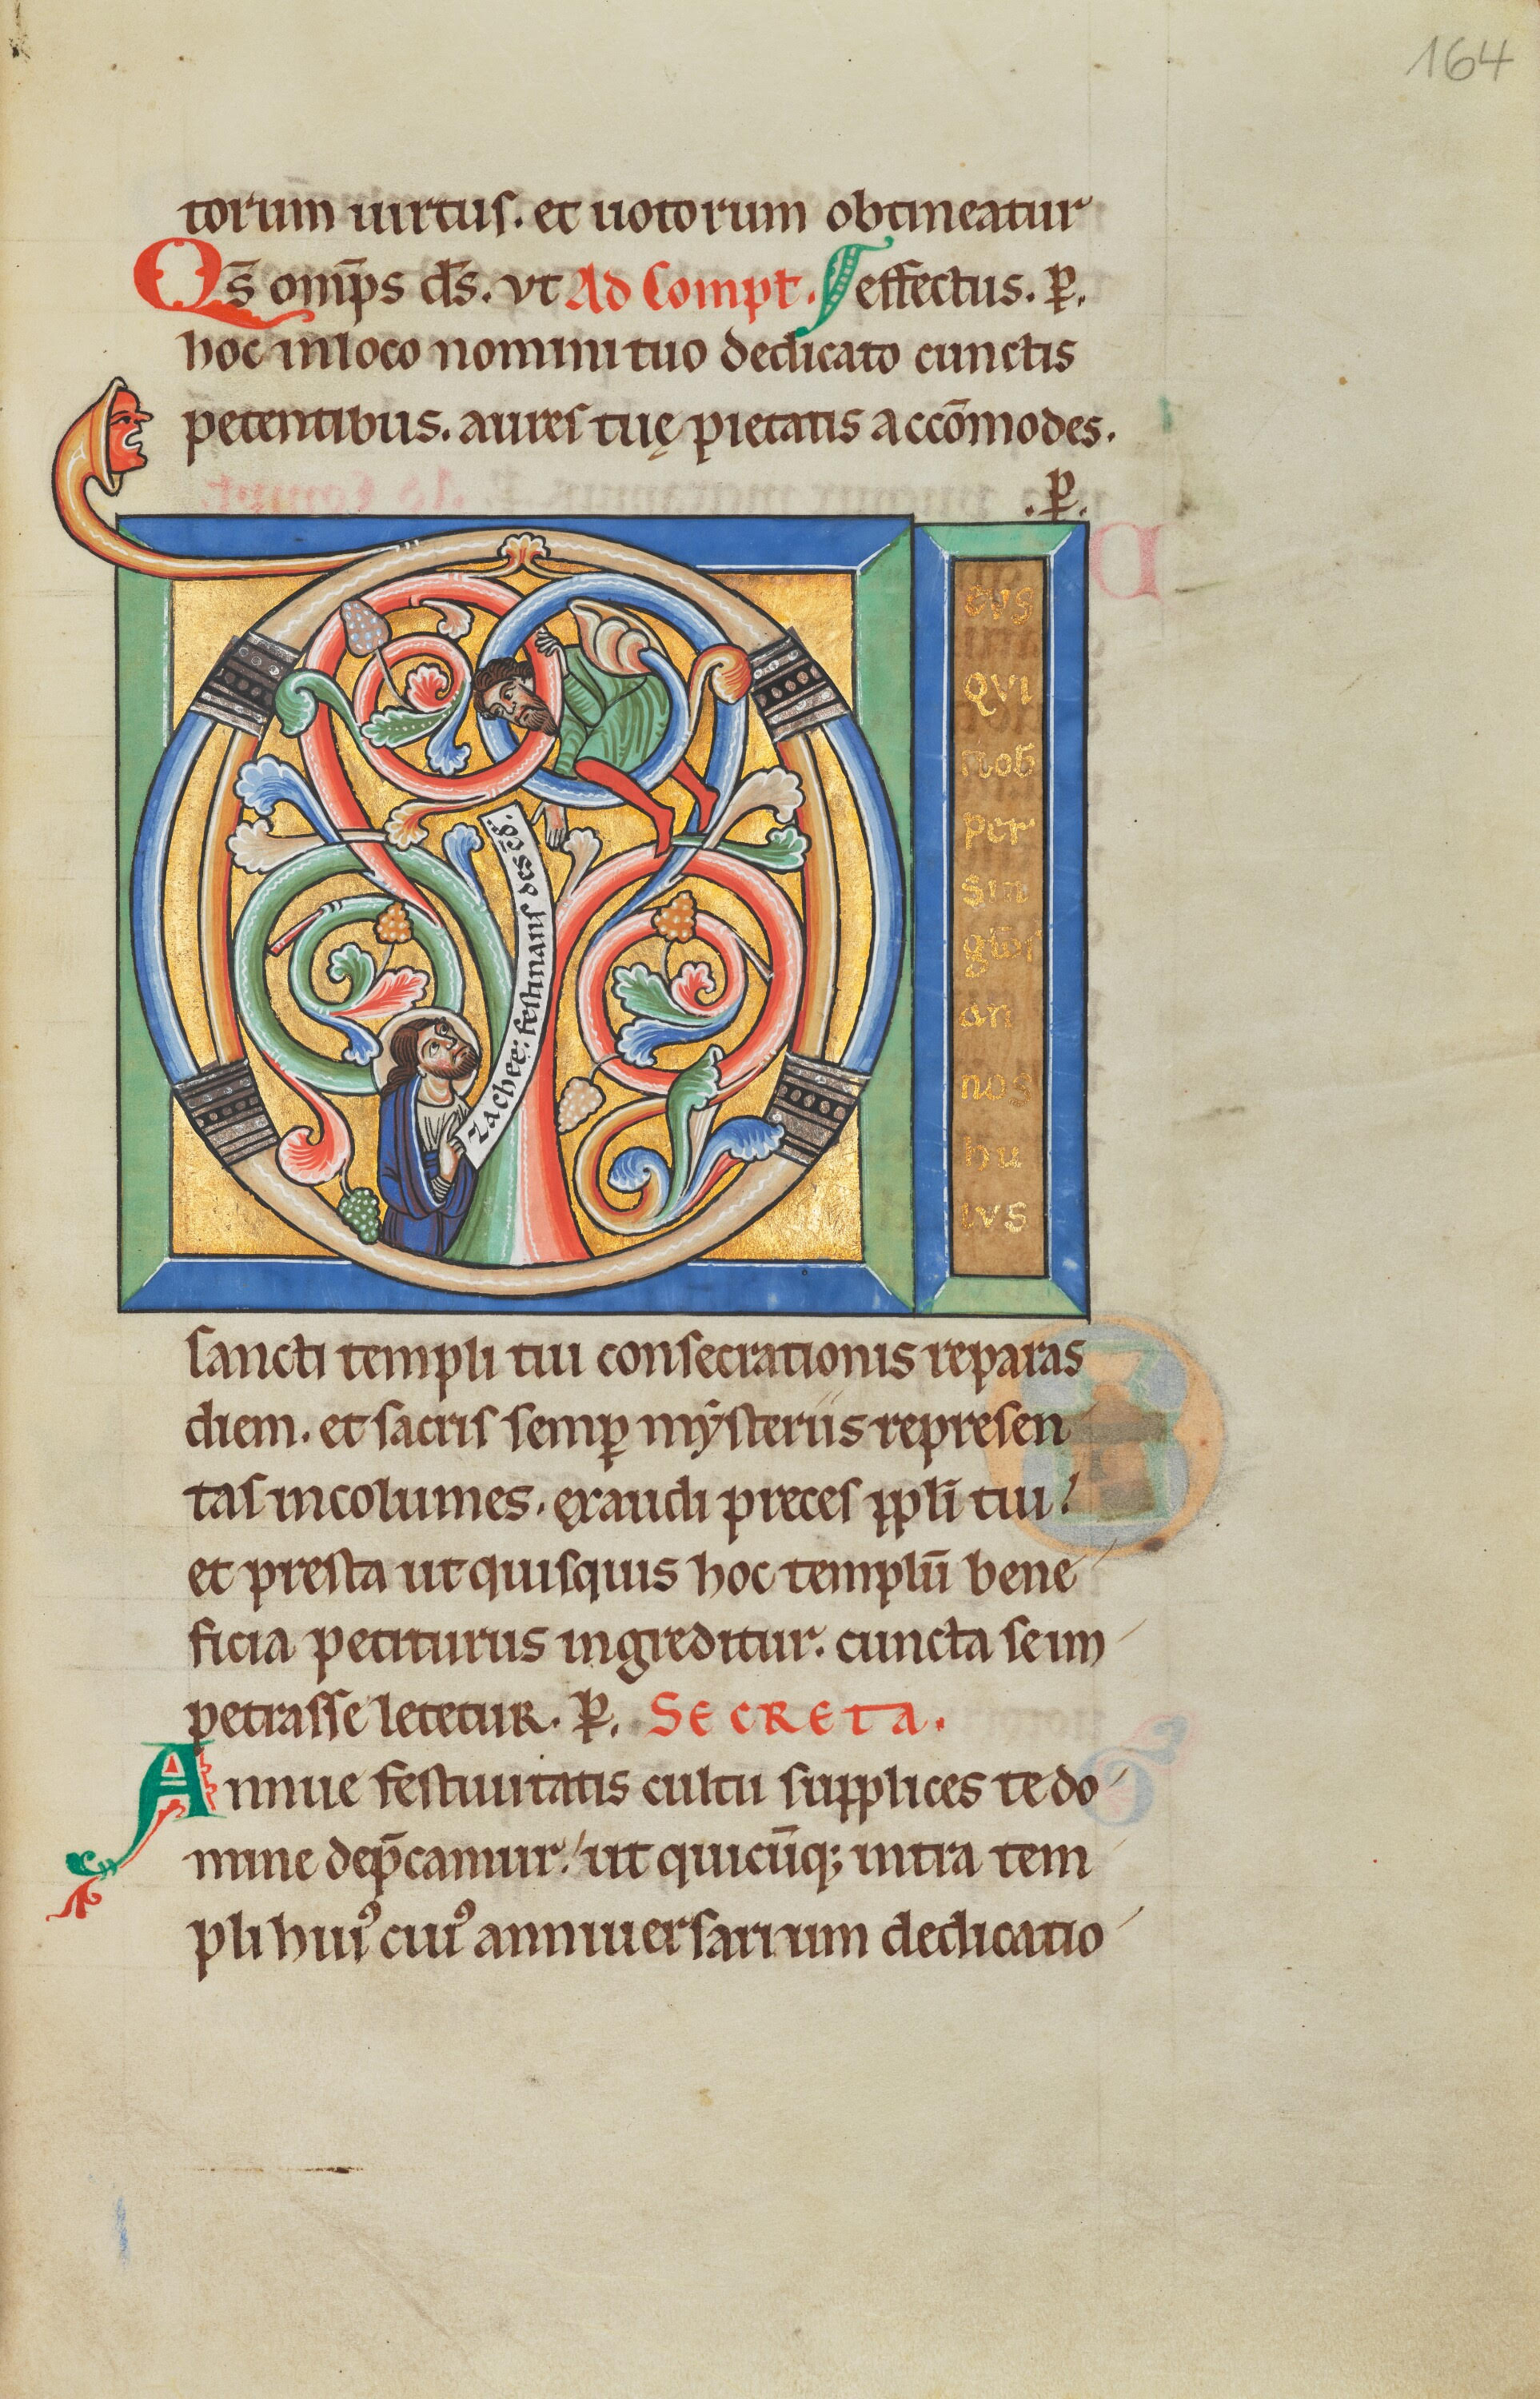 164
torum uirtus. et uotorum obtineatur
Qs̄ omp̄s ds̄. vt Ad Compl̄. effectus. P.
hoc in loco nomini tuo dedicato cunctis
petentibus. aures tuę pietatis accōmodes.
.P.
zachee: festinans desc̄d̄.
evs
qvi
nob̄
per
sin
gvlos
an
nos
hu
ivs
sancti templi tui consecrationis reparas
diem. et sacris semp̄ mẏsteriis represen
tas incolumes. exaudi preces ppl̄i tui!
et presta ut quisquis hoc templū bene
ficia petiturus ingreditur. cuncta se im
petrasse letetur. P. Secreta.
Annue festiuitatis cultu supplices te do
mine dep̄camur. ut quicūq; intra tem
pli huiꝰ cuiꝰ anniuersarium dedicatio